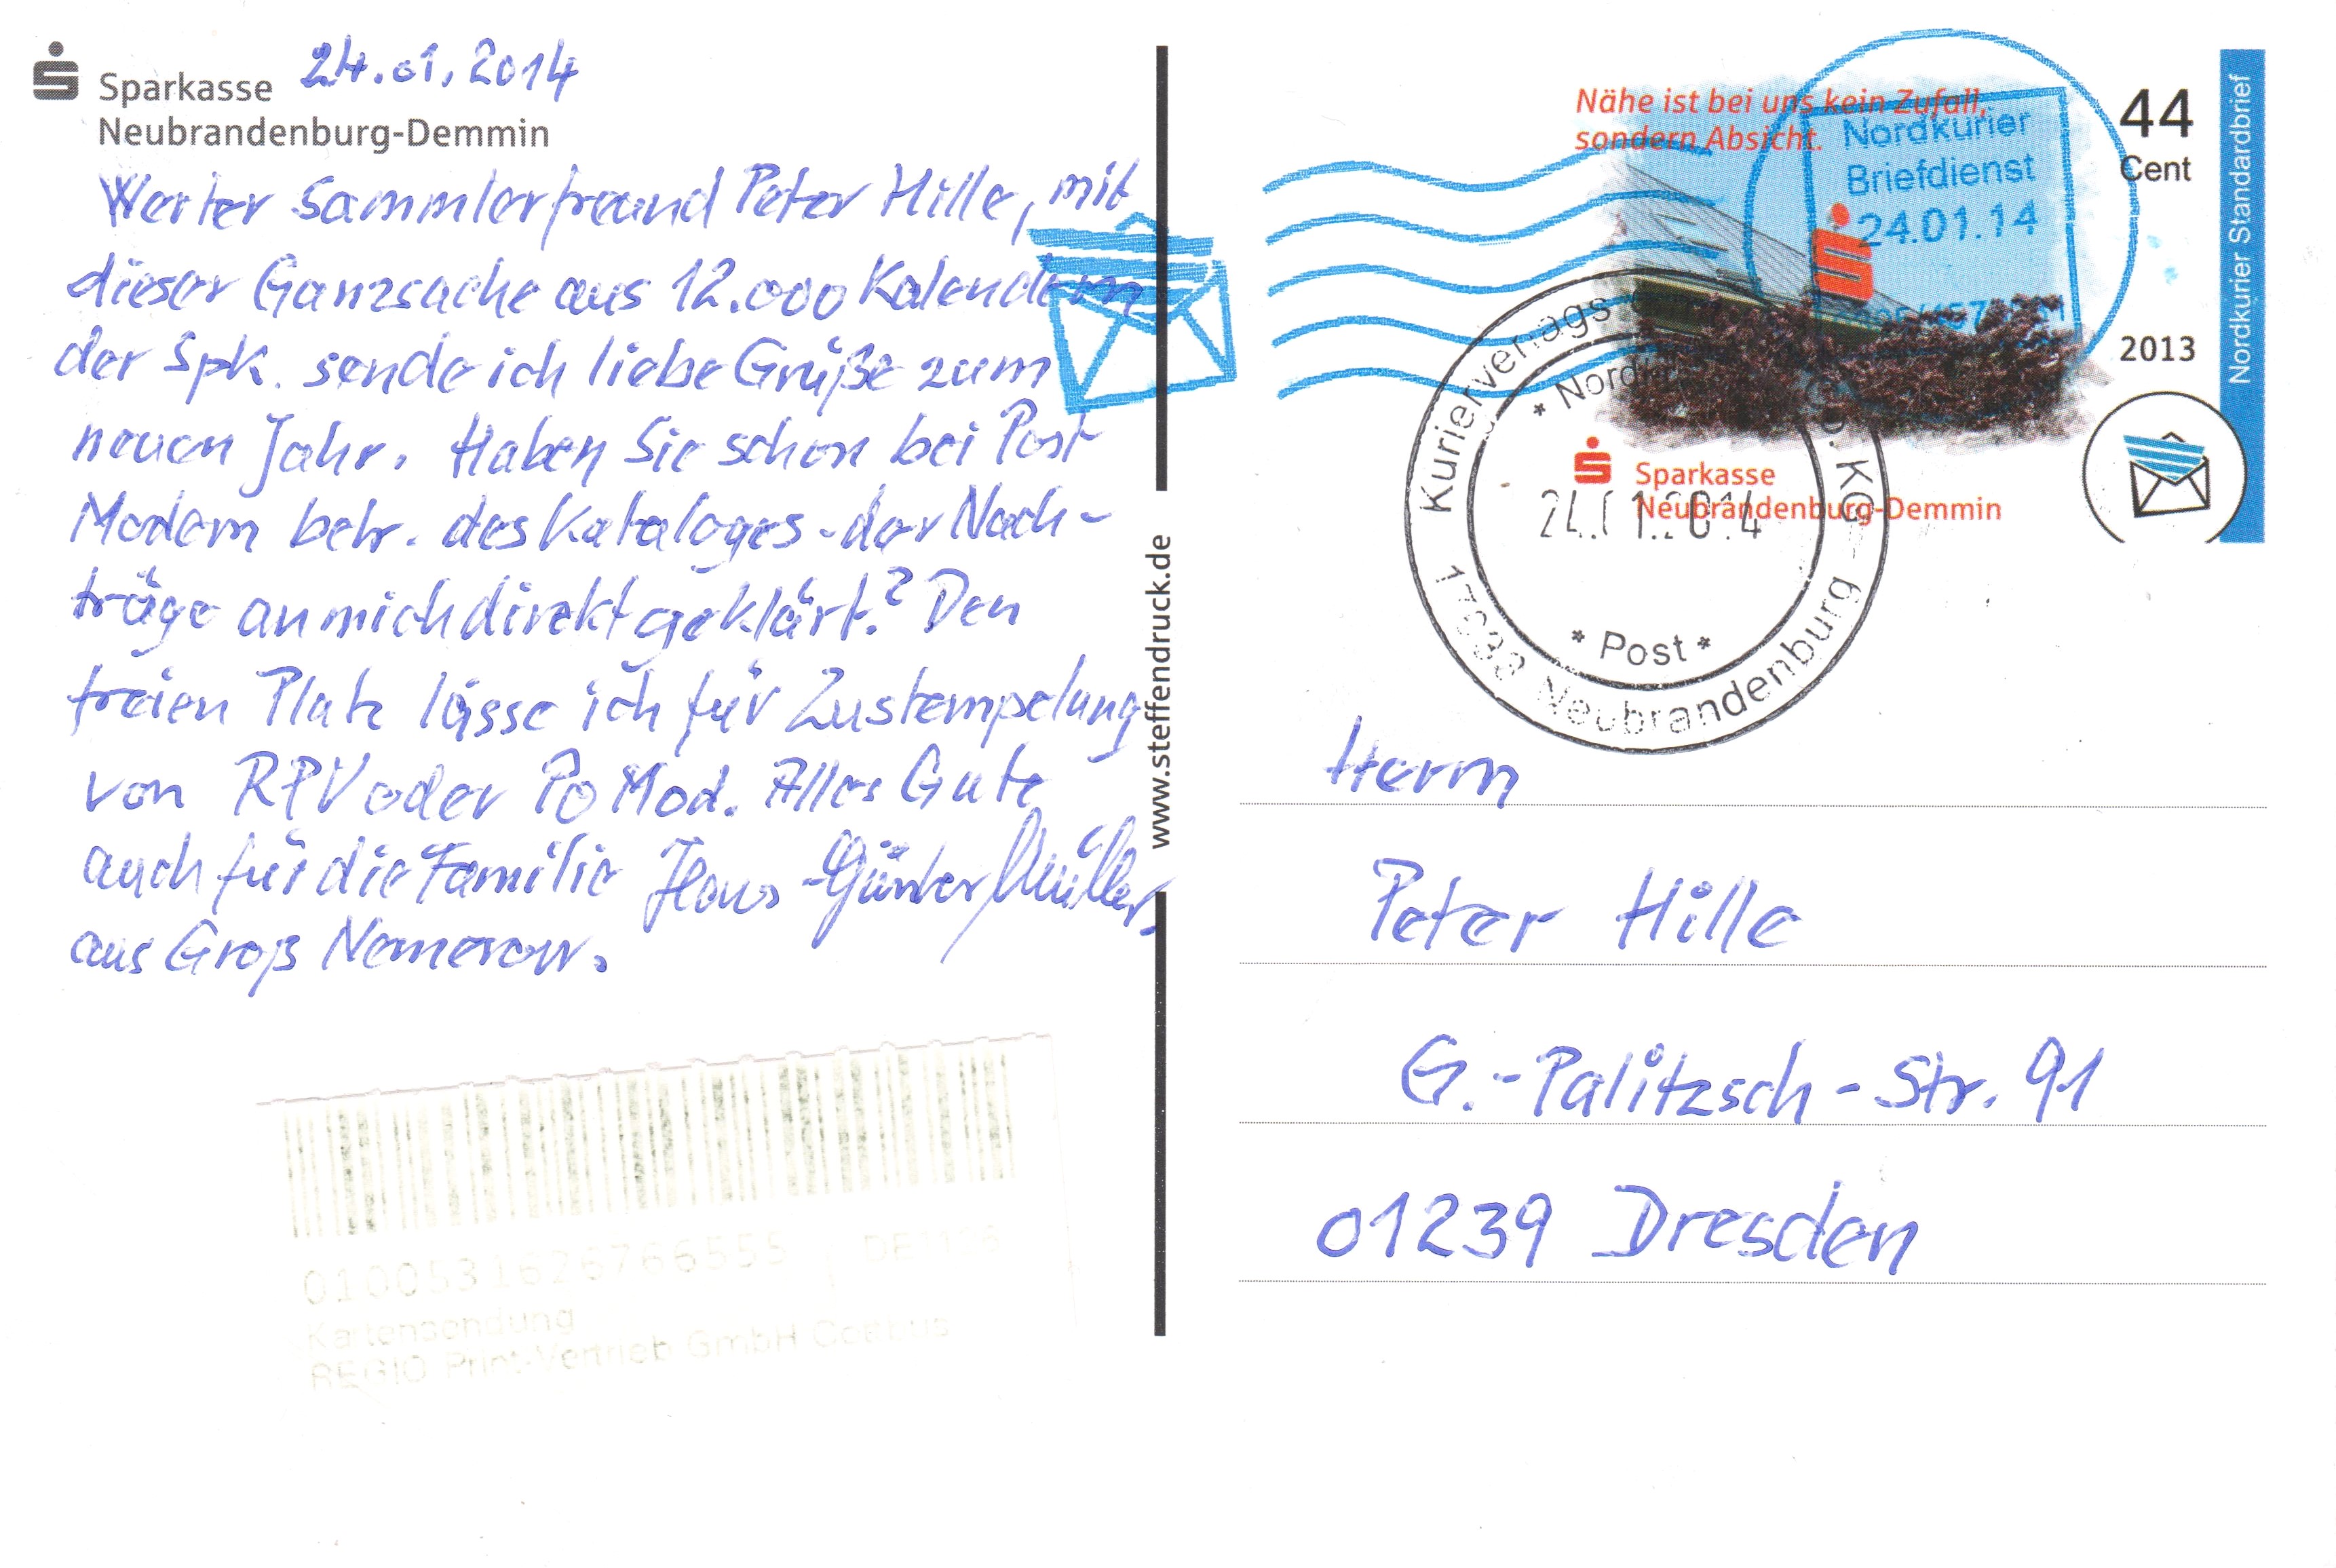 Sparkasse 24.01.2014
Neubrandenburg-Demmin
Werter Sammlerfreund Peter Hille, mit
dieser Ganzsache aus 12.000 Kalendern
der Spk. sende ich liebe Grüße zum
neuen Jahr. Haben Sie schon bei Post
Modern betr. des Kataloges - der Nach-
träge an mich direkt geklärt? Den
freien Platz lasse ich für Zustempelung
von RPV oder PoMod. Alles Gute
auch für die Familie Hans-Günter Müller
aus Groß Nemerow.
0100531626766555
Kartensendung
REGIO Print-Vertrieb GmbH Cottbus
www.steffendruck.de
Nähe ist bei uns kein Zufall,
sondern Absicht.
Nordkurier
Briefdienst
24.01.14
44
Cent
2013
Nordkurier Standardbrief
Sparkasse
Neubrandenburg-Demmin
Kurierverlags
KG
* Nord
24.01.2014
* Post *
17033 Neubrandenburg
Herrn
Peter Hille
G.-Palitzsch-Str. 91
01239 Dresden